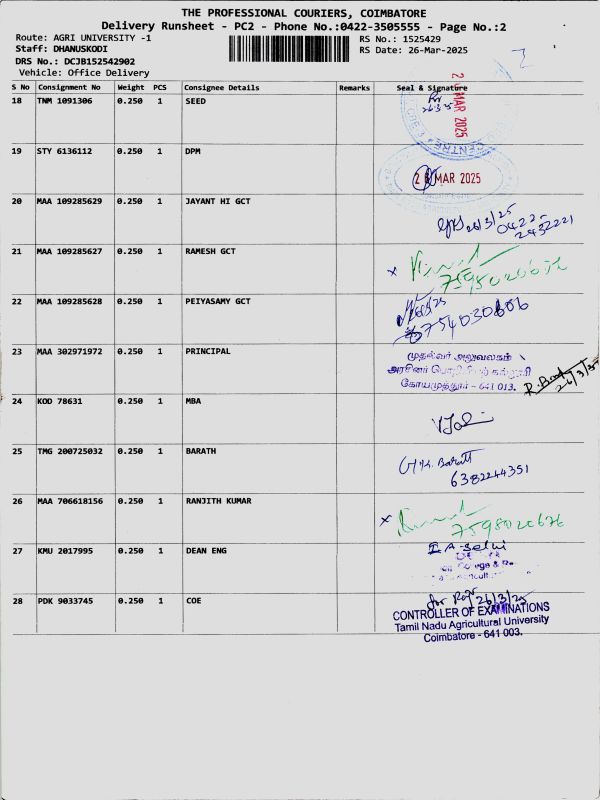 THE PROFESSIONAL COURIERS, COIMBATORE
Delivery Runsheet - PC2 - Phone No.:0422-3505555 - Page No.:2
Route: AGRI UNIVERSITY -1 RS No.: 1525429
Staff: DHANUSKODI RS Date: 26-Mar-2025
DRS No.: DCJB152542902
Vehicle: Office Delivery
S No Consignment No Weight PCS Consignee Details Remarks Seal & Signature
18 TNM 1091306 0.250 1 SEED
MAR 2025
CENTRE
19 STY 6136112 0.250 1 DPM
MAR 2025
20 MAA 109285629 0.250 1 JAYANT HI GCT
26/3/25
0422-
2432221
21 MAA 109285627 0.250 1 RAMESH GCT
22 MAA 109285628 0.250 1 PEIYASAMY GCT
754030606
23 MAA 302971972 0.250 1 PRINCIPAL
முதல்வர் அலுவலகம்
அரசினர்
கோயமுத்தூர் - 641 013.
26/3/25
24 KOD 78631 0.250 1 MBA
25 TMG 200725032 0.250 1 BARATH
Barath
6382244351
26 MAA 706618156 0.250 1 RANJITH KUMAR
7598020676
27 KMU 2017995 0.250 1 DEAN ENG
28 PDK 9033745 0.250 1 COE
26/3/25
CONTROLLER OF EXAMINATIONS
Tamil Nadu Agricultural University
Coimbatore - 641 003.